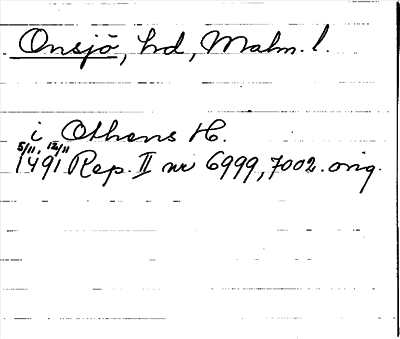 Onsjö, hd, Malm. l.
i Othens H.
5/11, 12/11
1491 Rep. II nr 6999, 7002. orig.